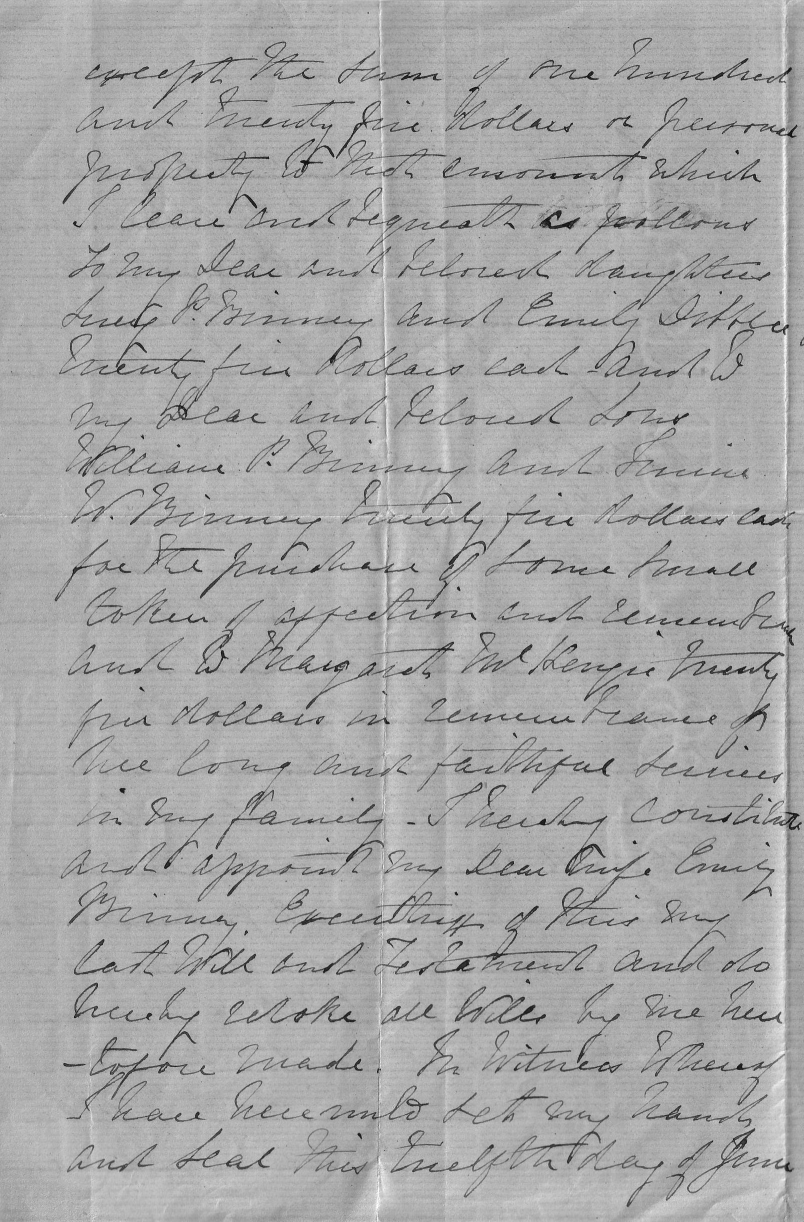 except the sum of one hundred
and twenty five dollars or personal
property to that amount which
I leave and bequeath as follows
To my Dear and beloved daughters
Lucy P. Binney and Emily Dibblee
twenty five dollars each - and to
my Dear and beloved sons
William P. Binney and
W. Binney twenty five dollars each
for the purchase of some small
token of affection and remembrance
and to Margaret McKenzie twenty
five dollars in remembrance of
her long and faithful services
in my family - I hereby constitute
and appoint my Dear wife Emily
Binney Executrix of this my
last Will and Testament and do
hereby revoke all Wills by me here
-tofore made. In Witness Whereof
I have hereunto set my hand
and seal this twelfth day of June